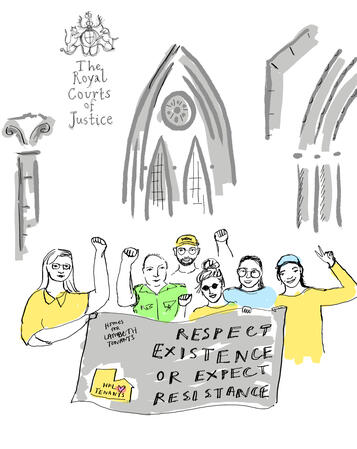 The
Royal
Courts
of
Justice
HOMES
FOR
LAMBETH
TENANTS
RESPECT
EXISTENCE
OR EXPECT
RESISTANCE
HFL
TENANTS